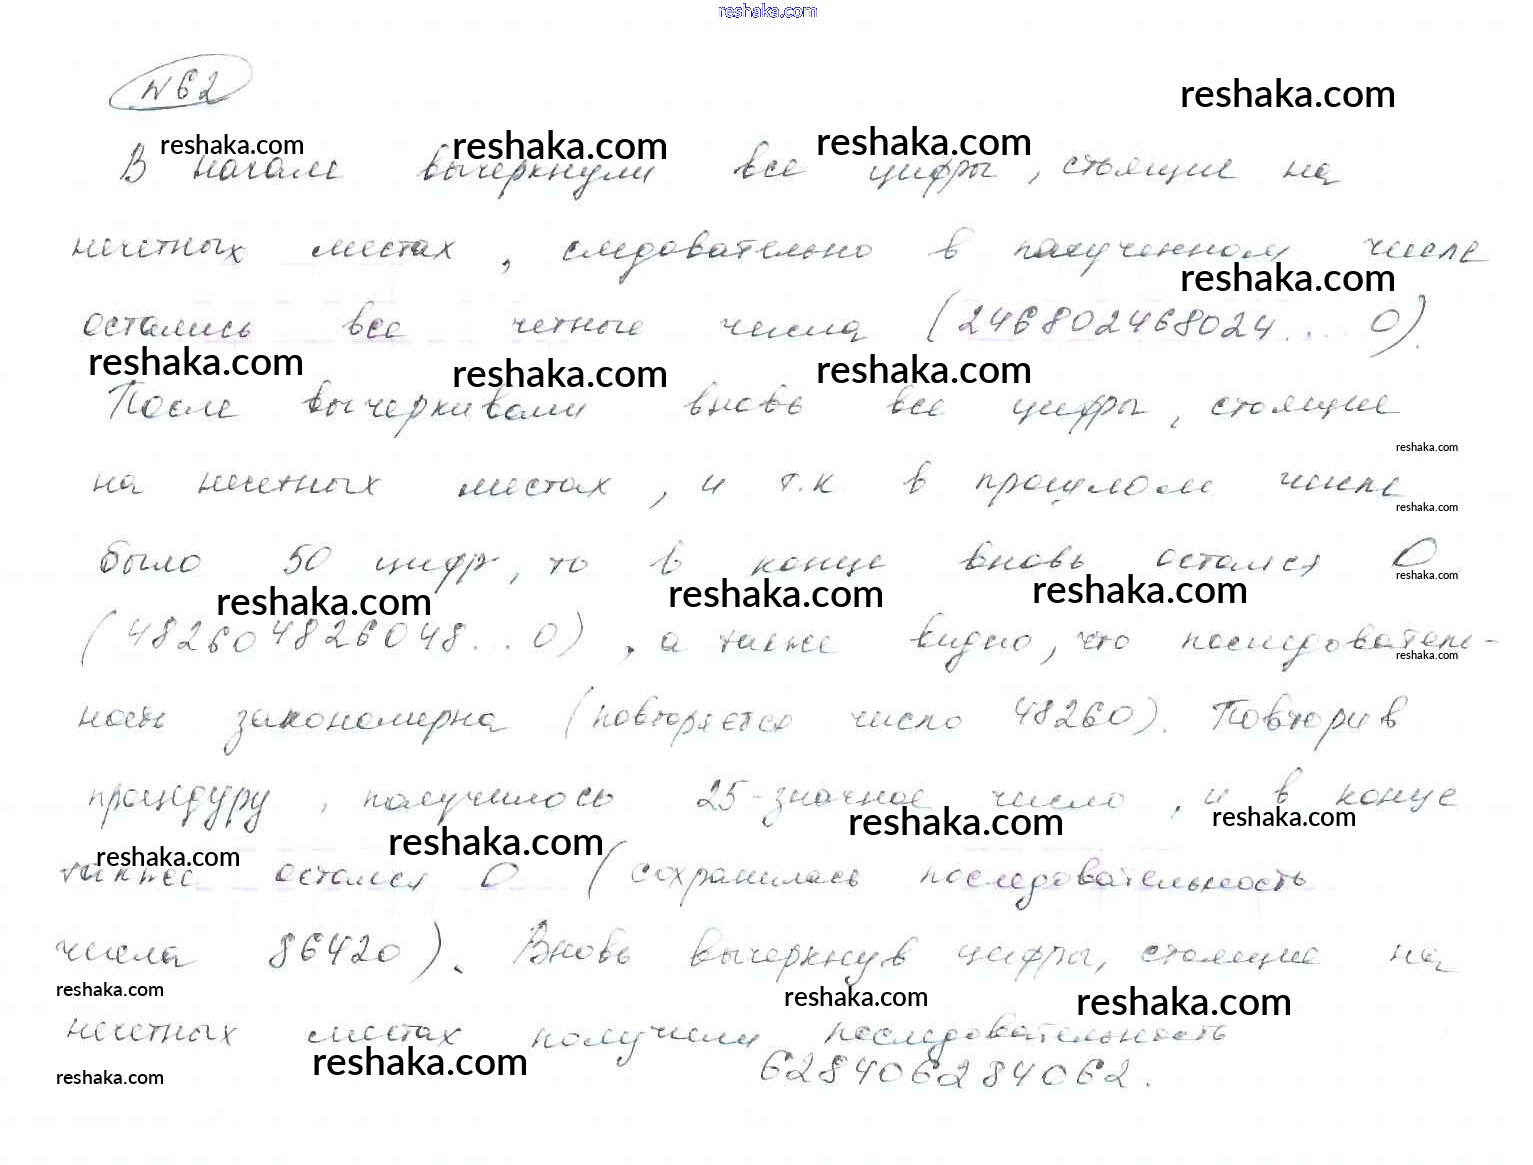 reshaka.com
№62
reshaka.com
reshaka.com reshaka.com reshaka.com
В начале вычеркнули все цифры, стоящие на
нечетных местах, следовательно в полученном числе
reshaka.com
остались все четные числа (246802468024... 0).
reshaka.com reshaka.com reshaka.com
После вычеркивами вновь все цифры, стоящие
reshaka.com
на нечетных местах, и т.к в прошлом числе
reshaka.com
было 50 цифр, то в конце вновь остался 0
reshaka.com
reshaka.com reshaka.com reshaka.com
(482604826048...0), а также видно, что последователь-
reshaka.com
ность закономерна (повторяется число 48260). Повторив
процедуру, получилось 25-значное число, и в конце
reshaka.com reshaka.com
reshaka.com reshaka.com
также остался 0 (сохранилась последовательность
числа 86420). Вновь вычеркнув цифры, стоящие на
reshaka.com reshaka.com reshaka.com
нечетных местах получили последовательность
reshaka.com
reshaka.com
628406284062.